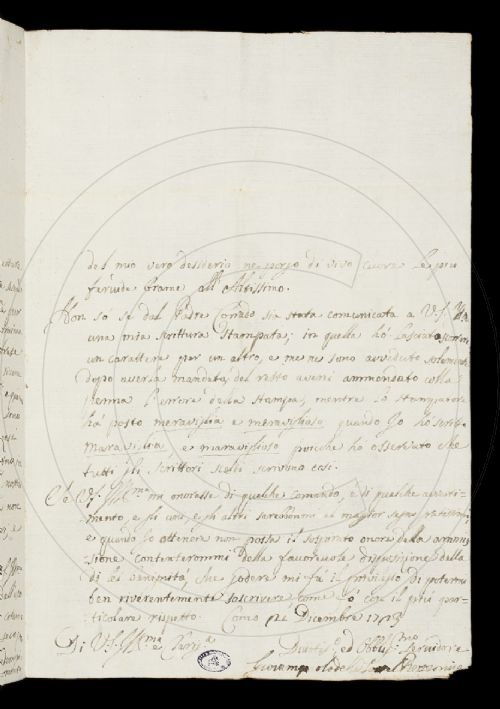 del mio vero desiderio ne porgo di vivo cuore le più
fervide brame all'Altissimo.
Non so se dal Padre Corrado sia stata comunicata a V.S. Ill.ma
una mia scrittura stampata; in quella hò lasciato
un carattere per un altro, e me ne sono avveduto solamente
dopo averla mandata, del resto averei ammendato colla
penna l'errore della stampa, mentre lo stampatore
hà posto meraviglia e meraviglioso quando Io ho scritto
maraviglia, e maraviglioso poiche ho osservato che
tutti gli scrittori scelti scrivono così.
Che V.S. Ill.ma m'onorasse di qualche comando, e di qualche
mento, e gli uni, e gli altri sarebbono al maggior segno
e quando Io ottenere non possa il sospirato onore della
zione contenterommi della favorevole disposizione della
di lei benignità, che godere mi fà il privilegio di potermi
ben riverentemente soscrivere, come fò con il più par-
ticolare rispetto. Como Dicembre
Di V.S. Ill.ma e
Devotis. ed Obblig.mo Servidore